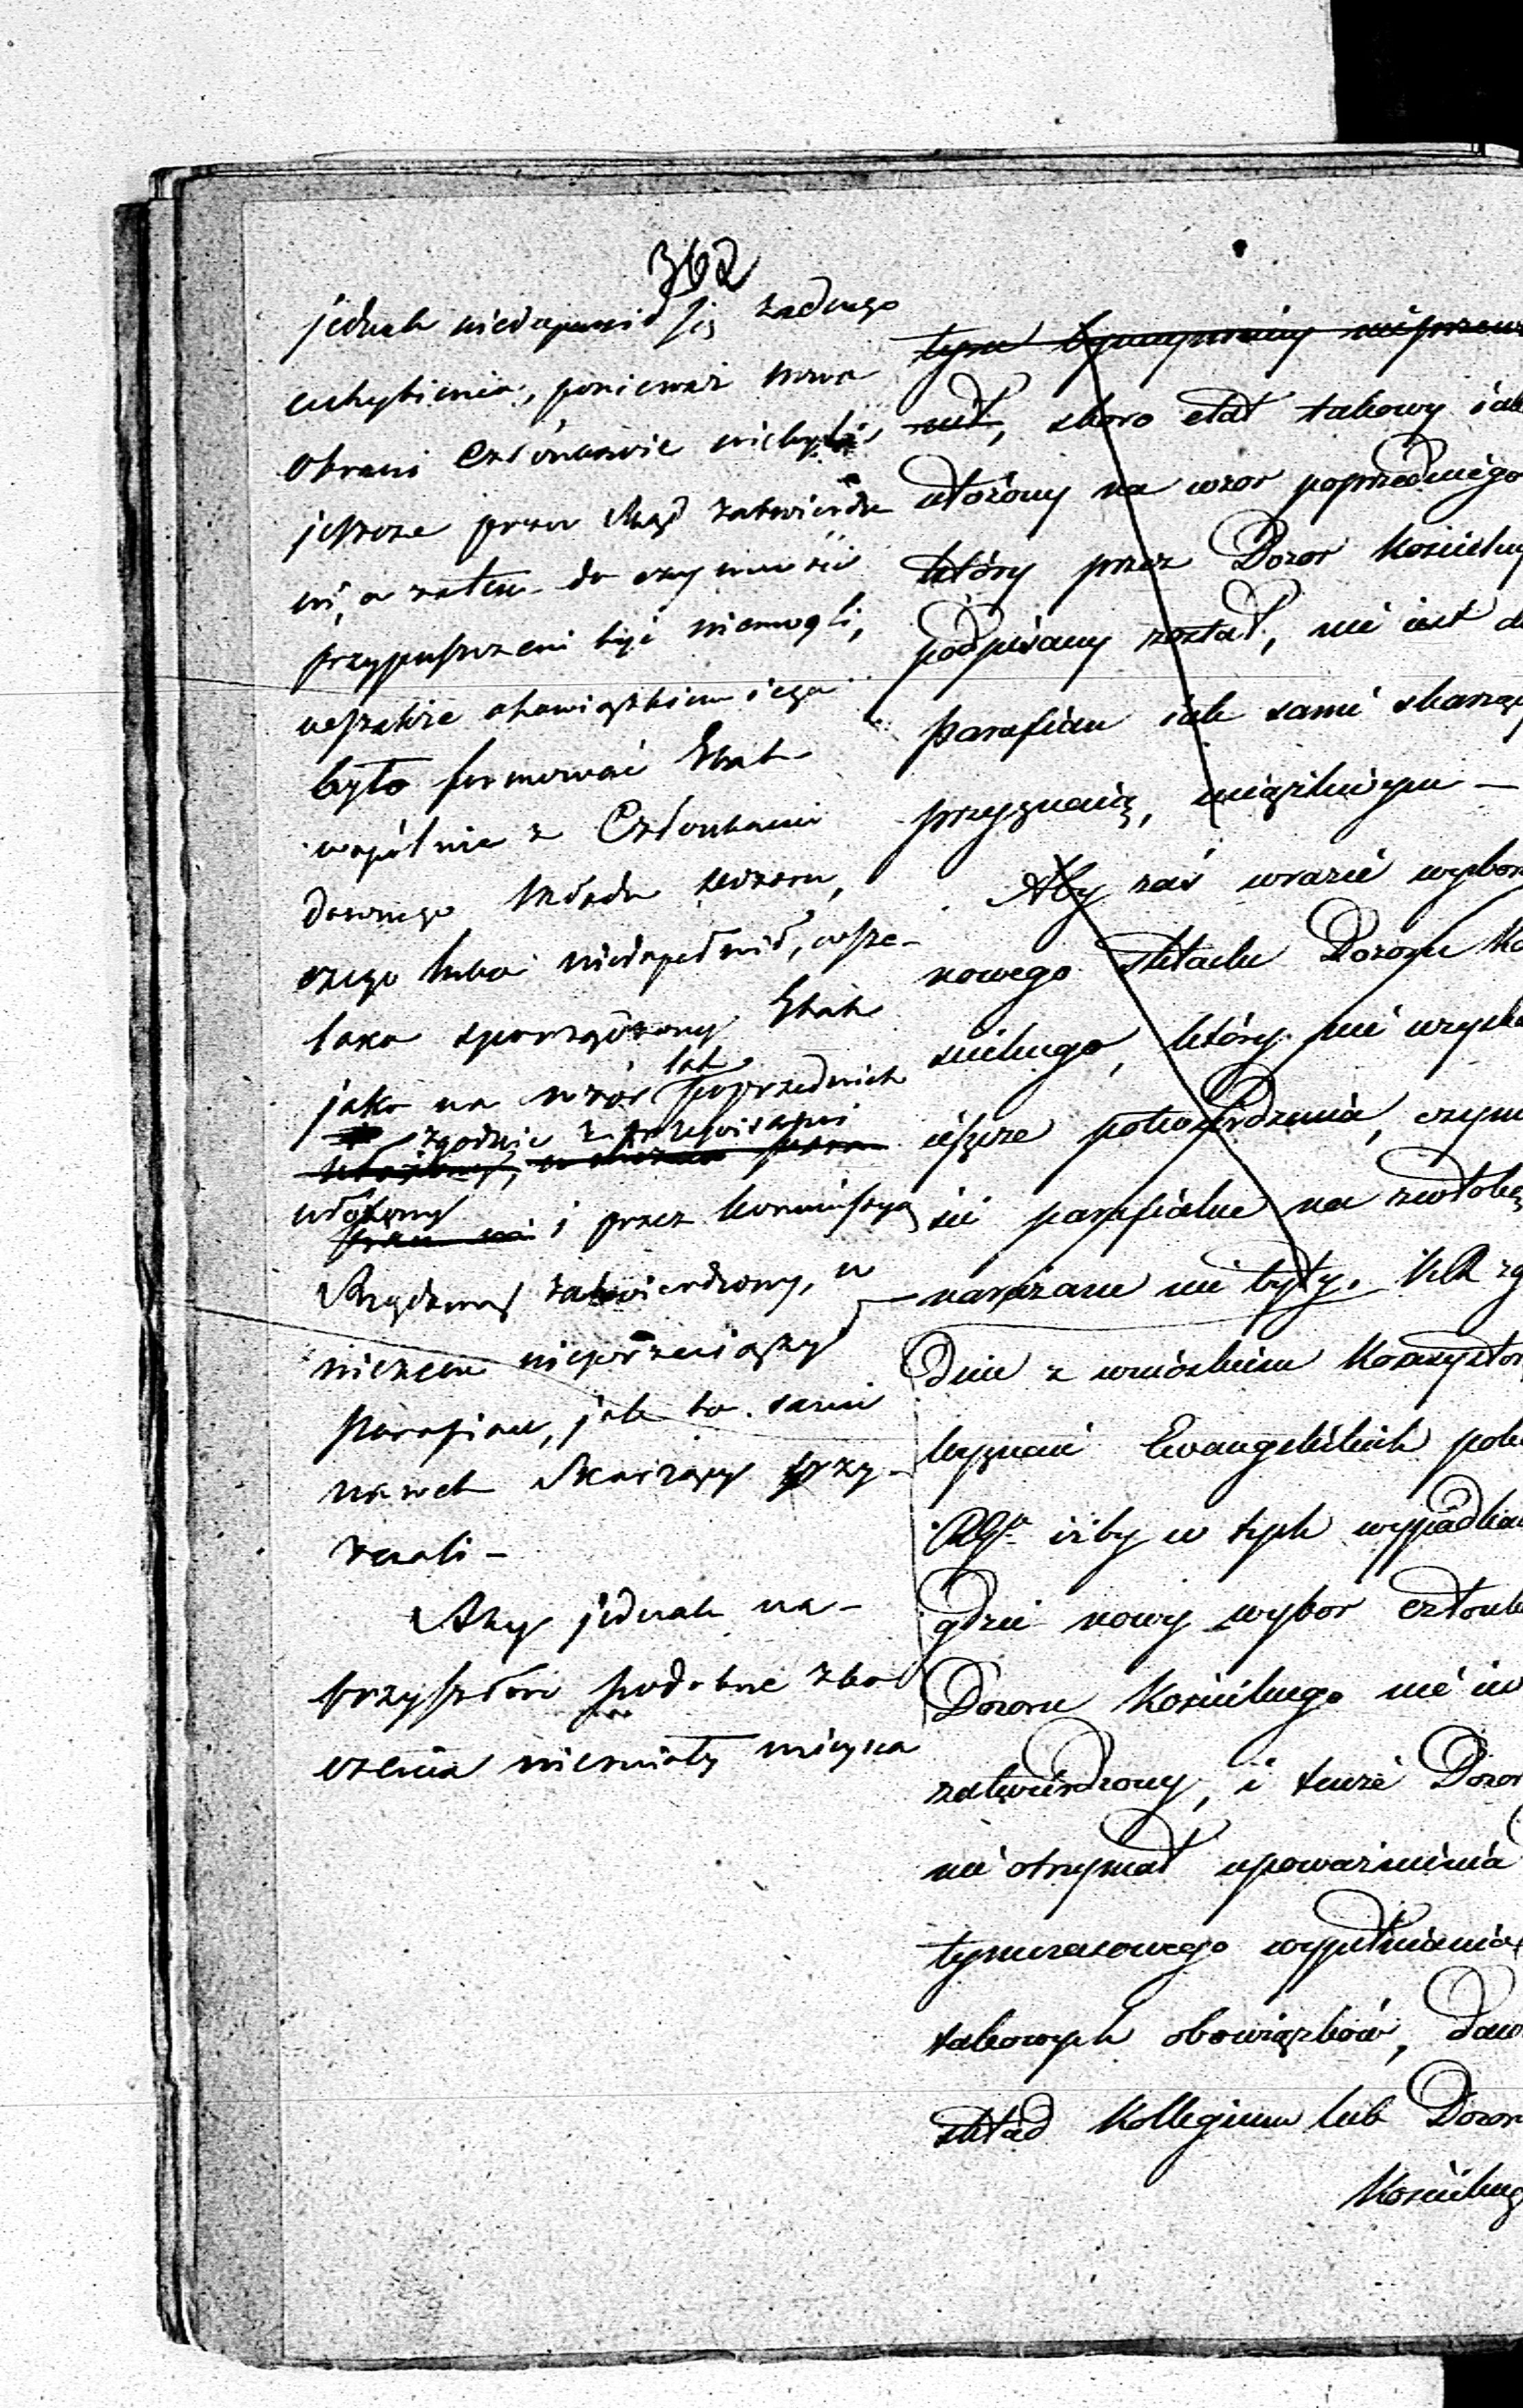 362
jednak niedopuścił się żadnego
uchybienia, ponieważ nowo
obrani Członkowie niebyli
jeszcze przez Rząd zatwierdze
ni, a zatem do czynności
przypuszczeni być niemogli,
wszakże obowiązkiem iego
było formować Etat
wspólnie z Członkami
dawnego składu dozoru,
czego lubo niedopełnił, wsze-
lako sporządzony Etat
jako na wzór lat poprzednich
zgodnie z przepisami
ułożony i przez Kommissyą
Rządową zatwierdzony, w
niczem nieprzeciąży
Parafian, jak to sami
nawet Skarżący przy-
znali -
Aby jednak na-
przyszłość podobne zbo
czenia niemiały mieysca
tym
nił, skoro etat takowy iak
ułożony na wzor poprzedniego
który przez Dozor Kościelny
podpisany został, nie iest dla
Parafian iak sami skarżący
przyznaią, uciążliwym —
Aby zaś wrazie wyboru
nowego składu Dozoru Ko
scielnego, który nie uzyskał
ieszcze potwierdzenia, czynno
ści parafialne na zwłokę
narażane nie były. KR zgo
dnie z wnioskiem Konsystorza
Wyznań Ewangelickich poleca
iżby w tych wypadkach
gdzie nowy wybor członków
Dozoru Kościelnego nie iest
zatwierdzony, i tenże Dozor
nie otrzymał upoważnienia
tymczasowego wypełniania
takowych obowiązków, dawny
skład Kollegium lub Dozoru
Kościelnego